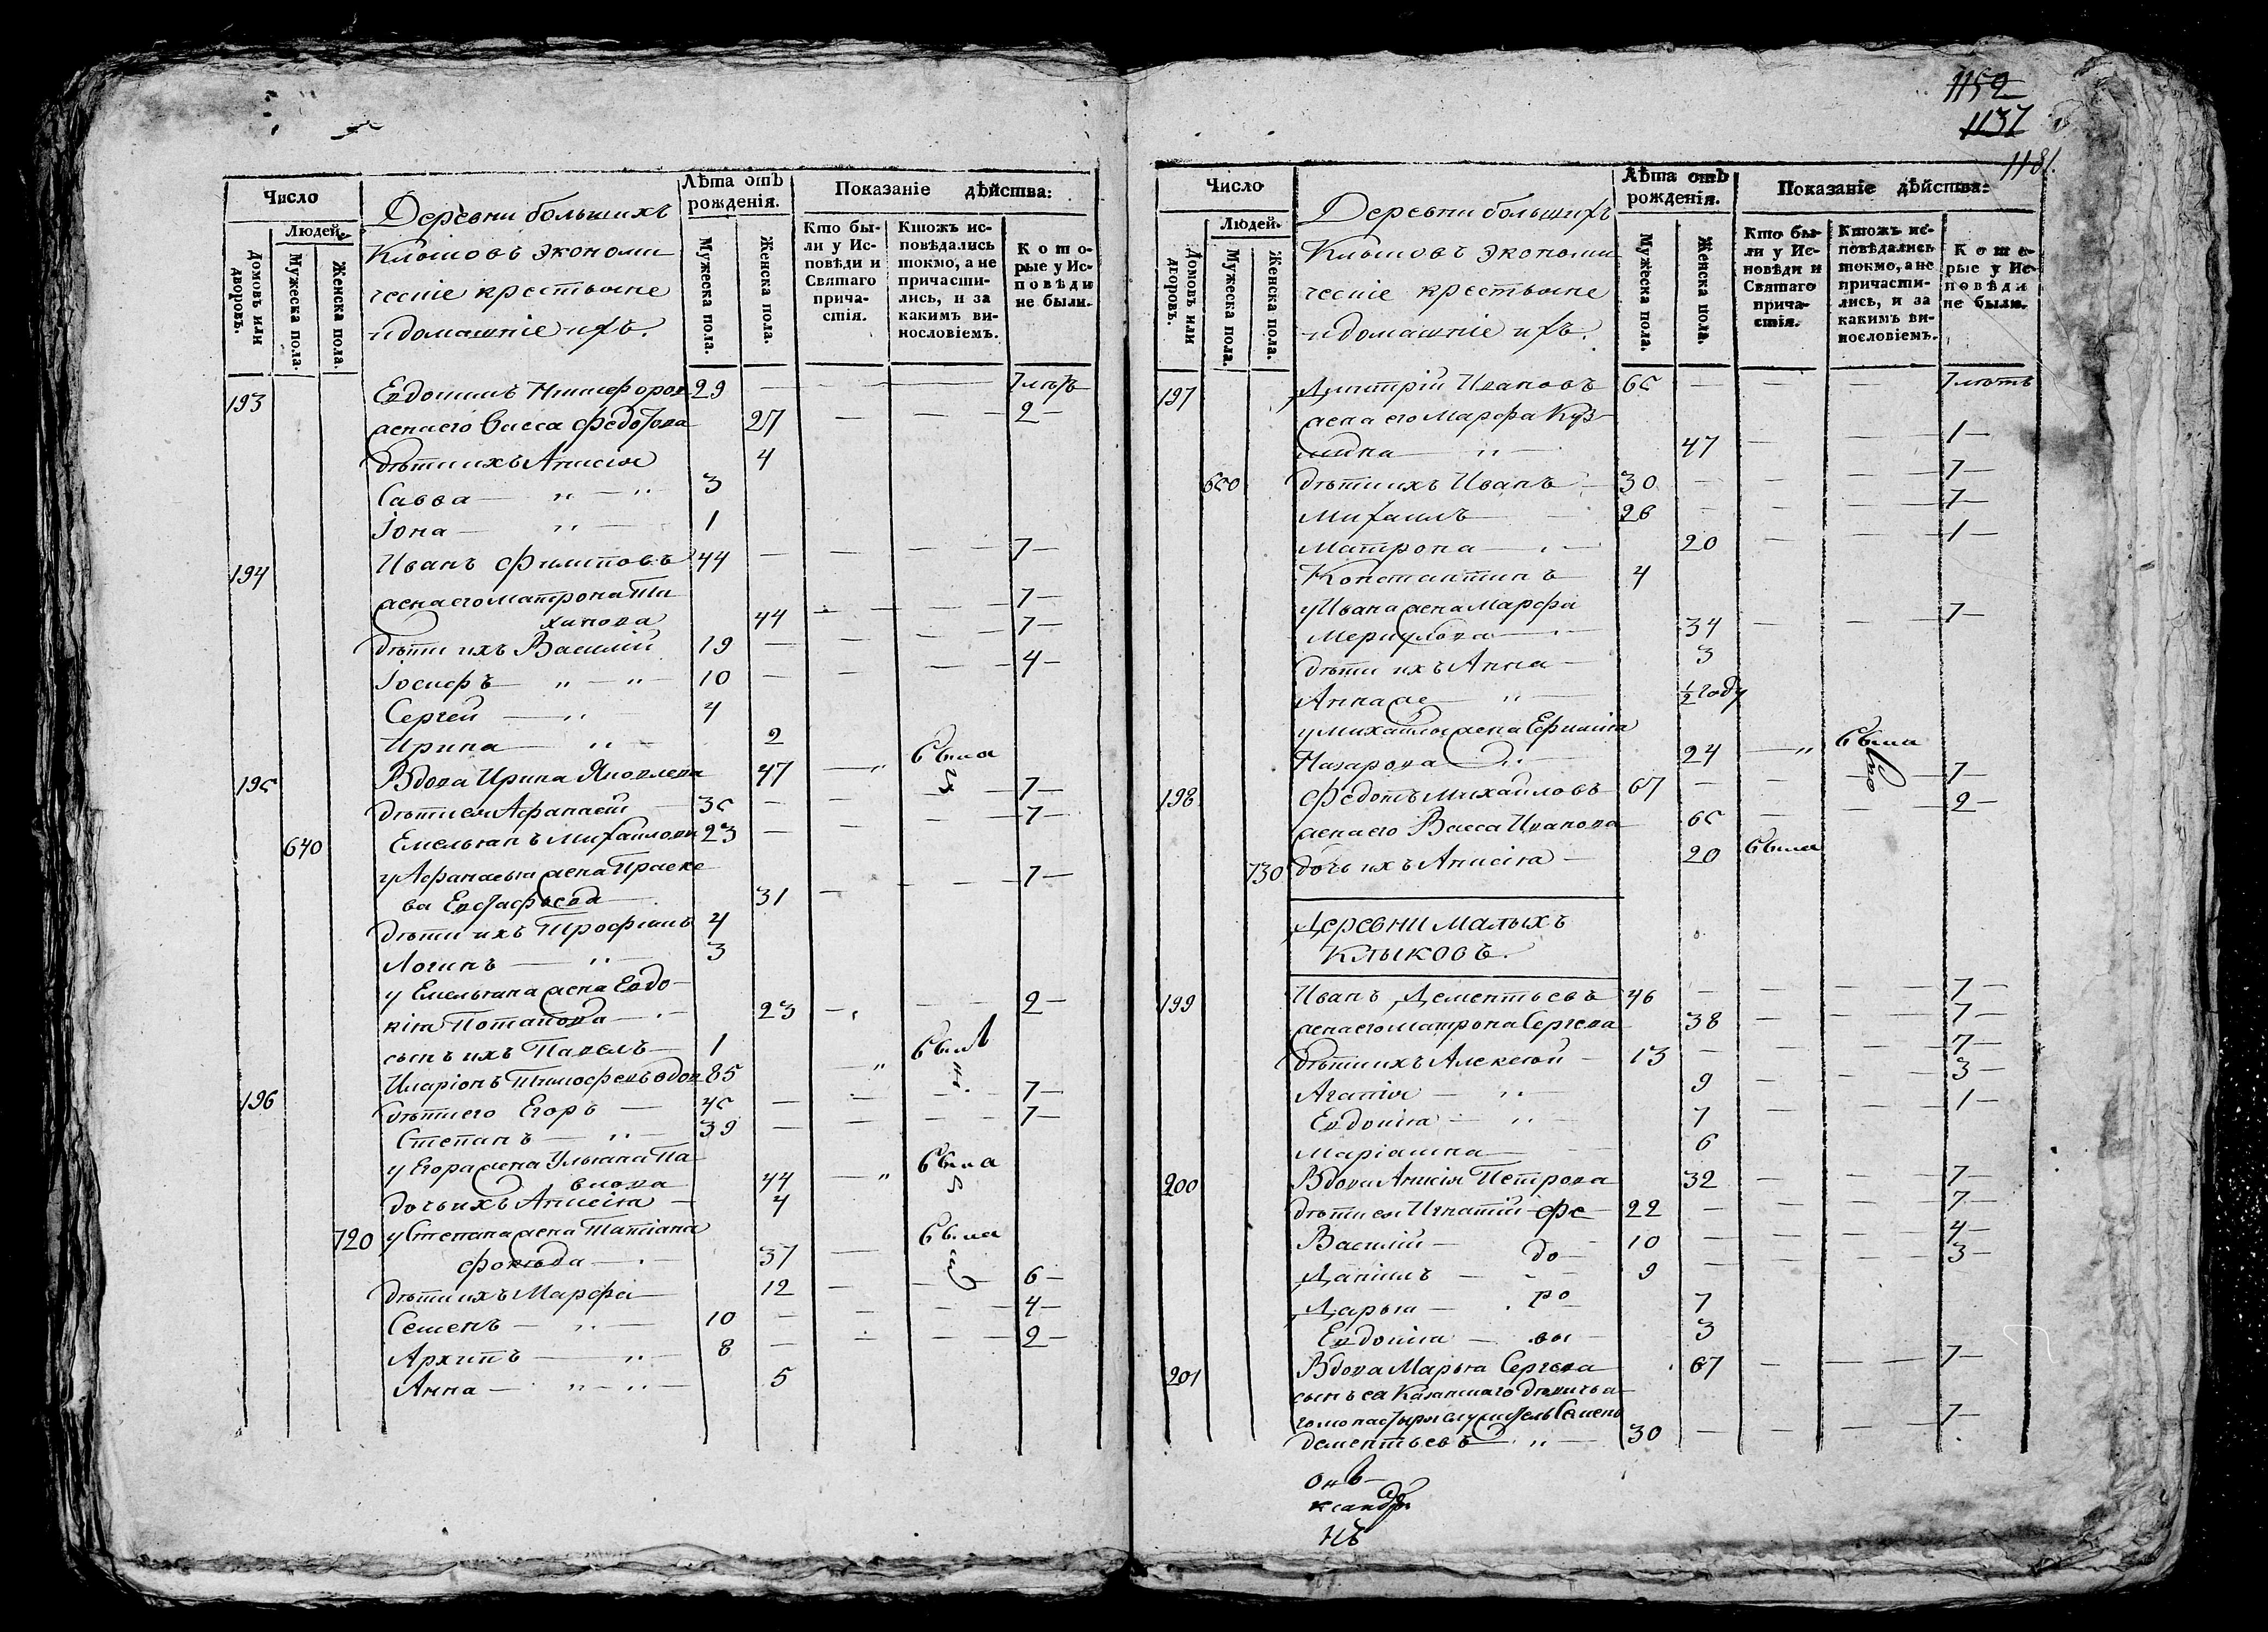 Число
Людей.
Домовъ или дворовъ.
Мужеска пола.
Женска пола.
Деревни большихъ
Клыковъ экономи
ческіе крестьяне
и домашніе ихъ.
Лѣта отъ рожденія.
Мужеска пола.
Женска пола.
Показаніе дѣйства:
Кто были у Исповѣди и Святаго причастія.
Ктожъ исповѣдались токмо, а не причастились, и за какимъ винословіемъ.
Которые у Исповѣди не были.
193 Евдокимъ Никифоров 29 — — — 7 лѣтъ
жена его Васса Федотова 27 — — — 2 —
дѣти ихъ Анисія 4
Савва — " — " 3
Іона — " — 1
194 Иванъ Филиповъ 44 — — — — 7 —
жена его Матрона Ти
хинова 44 — — — — 7 —
дѣти ихъ Василій 19 — — — — 7 —
Іосифъ — " — " 10 — — — — 4 —
Сергей — " 4
Ирина — " — 2
195 Вдова Ирина Яковлева 47 — " была
дѣти ея Афанасій 35 — — — 7 —
640 Емельянъ Михайловы 23 — — — — 7 —
у Афанасья жена Праске
ва Евстафьева 31 — — — — 7 —
дѣти ихъ Трофимъ 4
Логинъ — " — 3
у Емельяна жена Евдо-
кія Потапова — " — 23 — — — 2 —
сынъ ихъ Павелъ — 1
196 Иларіонъ Тимофеевъ вдов 85 — " былъ
дѣти его Егоръ — 45 — — — — 7 —
Степанъ — " — 39 — — — — 7 —
у Егора жена Ульяна Па-
влова 44 — " была
дочь ихъ Анисія — 4
720 у Степана жена Татіана
Фокѣева — " — 37 — была
дѣти ихъ Марфа — 12 — — — 6 —
Семенъ — " — 10 — — — — 4 —
Архипъ — " — 8 — — — — 2 —
Анна — " — " — 5
1152
1137
1181.
Число
Людей.
Домовъ или дворовъ.
Мужеска пола.
Женска пола.
Деревни большихъ
Клыковъ экономи
ческіе крестьяне
и домашніе ихъ.
Лѣта отъ рожденія.
Мужеска пола.
Женска пола.
Показаніе дѣйства:
Кто были у Исповѣди и Святаго причастія.
Ктожъ исповѣдались токмо, а не причастились, и за какимъ винословіемъ.
Которые у Исповѣди не были.
197 Дмитрій Ивановъ 65 — — 7 лѣтъ
жена его Марфа Куз
мина — " — 47 — — — 1 —
650 дѣти ихъ Иванъ — 30 — — — — 7 —
Михаилъ — 26 — — — — 7 —
Матрона — " — 20 — — — 1 —
Константинъ — 4
у Ивана жена Марфа
Меркулова — " — 34 — — — 7 —
дѣти ихъ Анна — 3
Анна же — " — ½ году
у Михайлы жена Ефимія
Назарова — " — 24 — " была
198 Федотъ Михайловъ 67 — — — — 7 —
жена его Васса Иванова 65 — — — 2 —
730 дочь ихъ Анисія — 20 была
Деревни Малыхъ
Клыковъ.
199 Иванъ Дементьевъ 46 — — — — 7 —
жена его Матрона Сергева 38 — — — 7 —
дѣти ихъ Алексѣй — 13 — — — — 7 —
Агапія — " — 9 — — — 3 —
Евдокія — " — 7 — — — 1 —
Маріамна — 6
200 Вдова Анисія Петрова 32 — — — 7 —
дѣти ея Игнатій Фе 22 — — — — 7 —
Василій — до — 10 — — — — 4 —
Даніилъ — — 9 — — — — 3 —
Дарья — ро 7
Евдокія — вы — 3
201 Вдова Марья Сергева 67 — — — 7 —
сынъ ея Казанскаго дѣвичья
го монастыря служитель Семенъ
Дементьевъ " — 30 — — — — 7 —